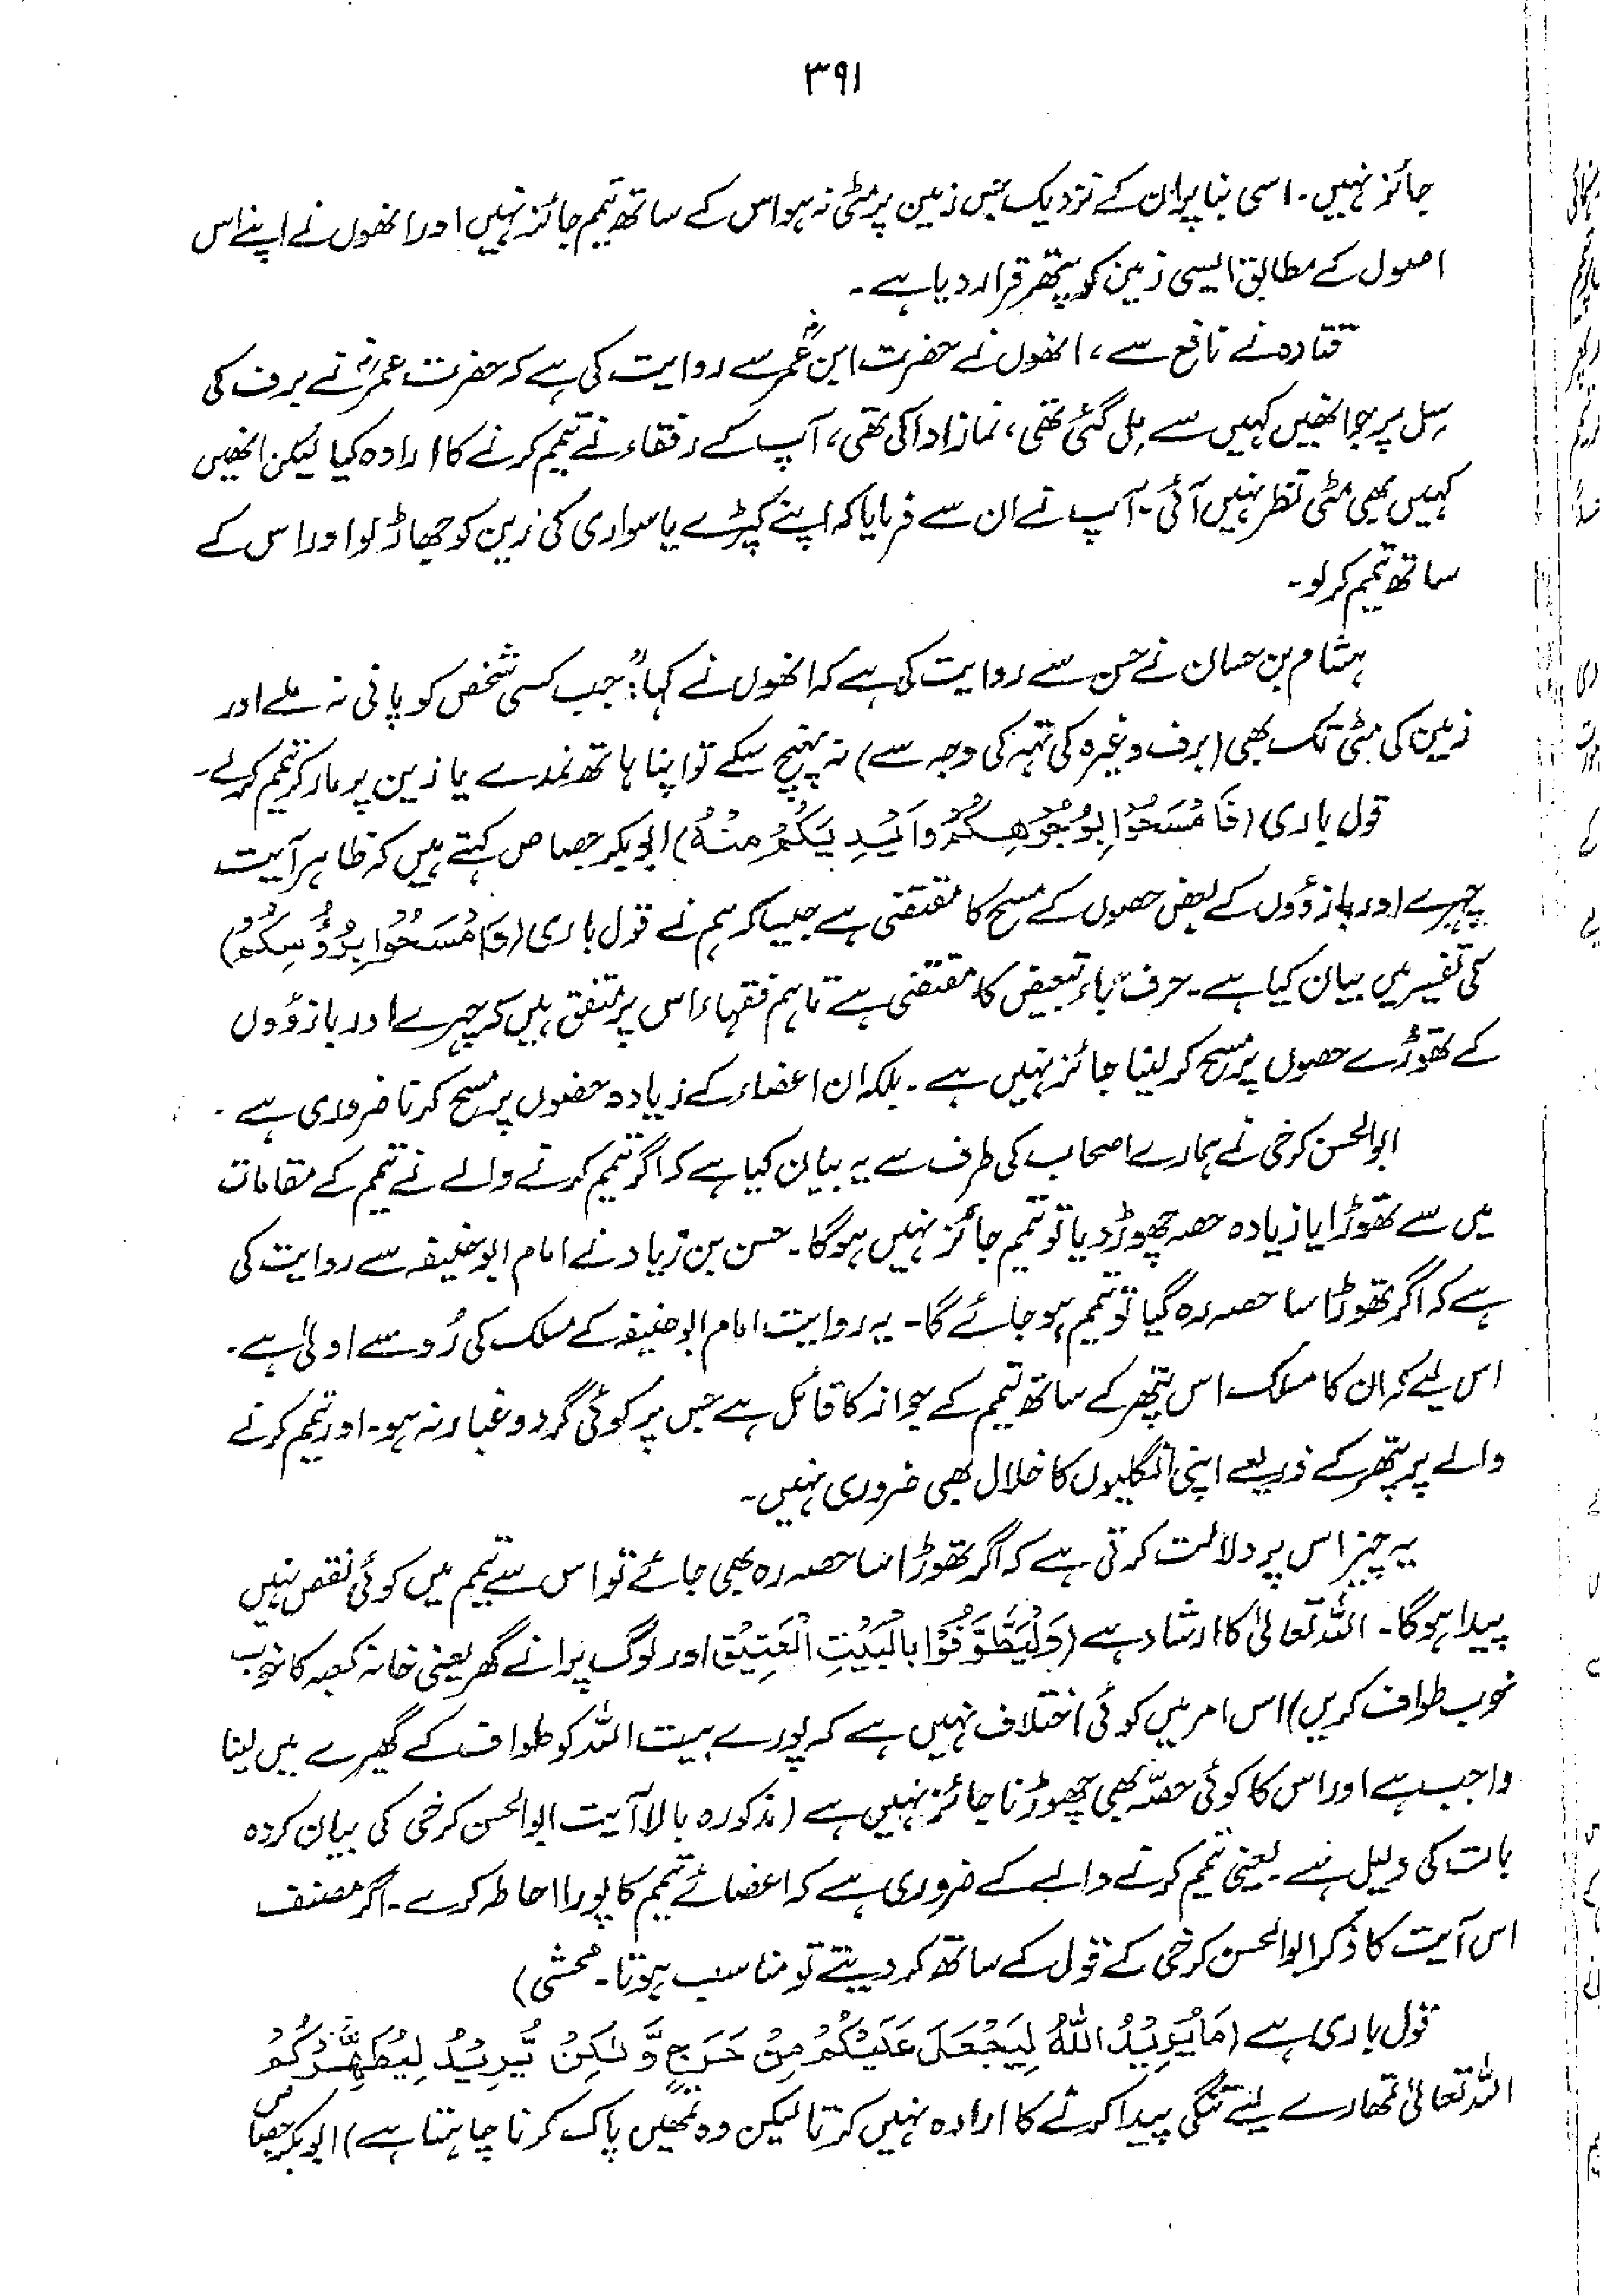 ۳۹۱
جائز نہیں۔ اسی بنا پر ان کے نزدیک جس زمین پر مٹی نہ ہو اس کے ساتھ تیمم جائز نہیں اور انھوں نے اپنے اس
اصول کے مطابق ایسی زمین کو پتھر قرار دیا ہے۔
قتادہ نے نافع سے، انھوں نے حضرت ابن عمرؓ سے روایت کی ہے کہ حضرت عمرؓ نے برف کی
سِل پر جو انھیں کہیں سے مِل گئی تھی، نماز ادا کی تھی، آپ کے رفقاء نے تیمم کرنے کا ارادہ کیا لیکن انھیں
کہیں بھی مٹی نظر نہیں آئی۔ آپ نے ان سے فرمایا کہ اپنے کپڑے یا سواری کی زین کو جھاڑ لو اور اس کے
ساتھ تیمم کر لو۔
ہشام بن حسان نے حسن سے روایت کی ہے کہ انھوں نے کہا:" جب کسی شخص کو پانی نہ ملے اور
زمین کی مٹی تک بھی (برف وغیرہ کی تہہ کی وجہ سے) نہ پہنچ سکے تو اپنا ہاتھ نمدے یا زین پر مار کر تیمم کر لے۔
قول باری (فَامْسَحُوْا بِوُجُوْهِكُمْ وَاَيْدِيَكُمْ مِنْهُ) ابوبکر جصاص کہتے ہیں کہ ظاہر آیت
چہرے اور بازوؤں کے بعض حصوں کے مسح کا مقتضی ہے جیسا کہ ہم نے قول باری (وَامْسَحُوْا بِرُؤُسِكُمْ)
کی تفسیر میں بیان کیا ہے۔ حرف باء تبعیض کا مقتضی ہے تاہم فقہاء اس پر متفق ہیں کہ چہرے اور بازوؤں
کے تھوڑے حصوں پر مسح کر لینا جائز نہیں ہے۔ بلکہ ان اعضاء کے زیادہ حصوں پر مسح کرنا ضروری ہے۔
ابوالحسن کرخی نے ہمارے اصحاب کی طرف سے یہ بیان کیا ہے کہ اگر تیمم کرنے والے نے تیمم کے مقامات
میں سے تھوڑا یا زیادہ حصہ چھوڑ دیا تو تیمم جائز نہیں ہوگا۔ حسن بن زیاد نے امام ابو حنیفہ سے روایت کی
ہے کہ اگر تھوڑا سا حصہ رہ گیا تو تیمم ہو جائے گا۔ یہ روایت امام ابو حنیفہ کے مسلک کی رُو سے اولیٰ ہے۔
اس لیے کہ ان کا مسلک اس پتھر کے ساتھ تیمم کے جواز کا قائل ہے جس پر کوئی گرد و غبار نہ ہو۔ اور تیمم کرنے
والے پر پتھر کے ذریعے اپنی انگلیوں کا خلال بھی ضروری نہیں۔
یہ چیز اس پر دلالت کرتی ہے کہ اگر تھوڑا سا حصہ رہ بھی جائے تو اس سے تیمم میں کوئی نقص نہیں
پیدا ہوگا۔ اللہ تعالیٰ کا ارشاد ہے (وَلْيَطَّوَّفُوْا بِالْبَيْتِ الْعَتِيْقِ اور لوگ پرانے گھر یعنی خانہ کعبہ کا خوب
خوب طواف کریں) اس امر میں کوئی اختلاف نہیں ہے کہ پورے بیت اللہ کو طواف کے گھیرے میں لینا
واجب ہے اور اس کا کوئی حصّہ بھی چھوڑنا جائز نہیں ہے (مذکورہ بالا آیت ابوالحسن کرخی کی بیان کردہ
بات کی دلیل ہے۔ یعنی تیمم کرنے والے کے ضروری ہے کہ اعضائے تیمم کا پورا احاطہ کرے۔ اگر مصنف
اس آیت کا ذکر ابوالحسن کرخی کے قول کے ساتھ کر دیتے تو مناسب ہوتا۔ محشی)
قول باری ہے (مَا يُرِيْدُ اللّٰهُ لِيَجْعَلَ عَلَيْكُمْ مِنْ حَرَجٍ وَّلٰكِنْ يُّرِيْدُ لِيُطَهِّرَكُمْ
اللہ تعالیٰ تمھارے لیے تنگی پیدا کرنے کا ارادہ نہیں کرتا لیکن وہ تمھیں پاک کرنا چاہتا ہے) ابوبکر جصاص